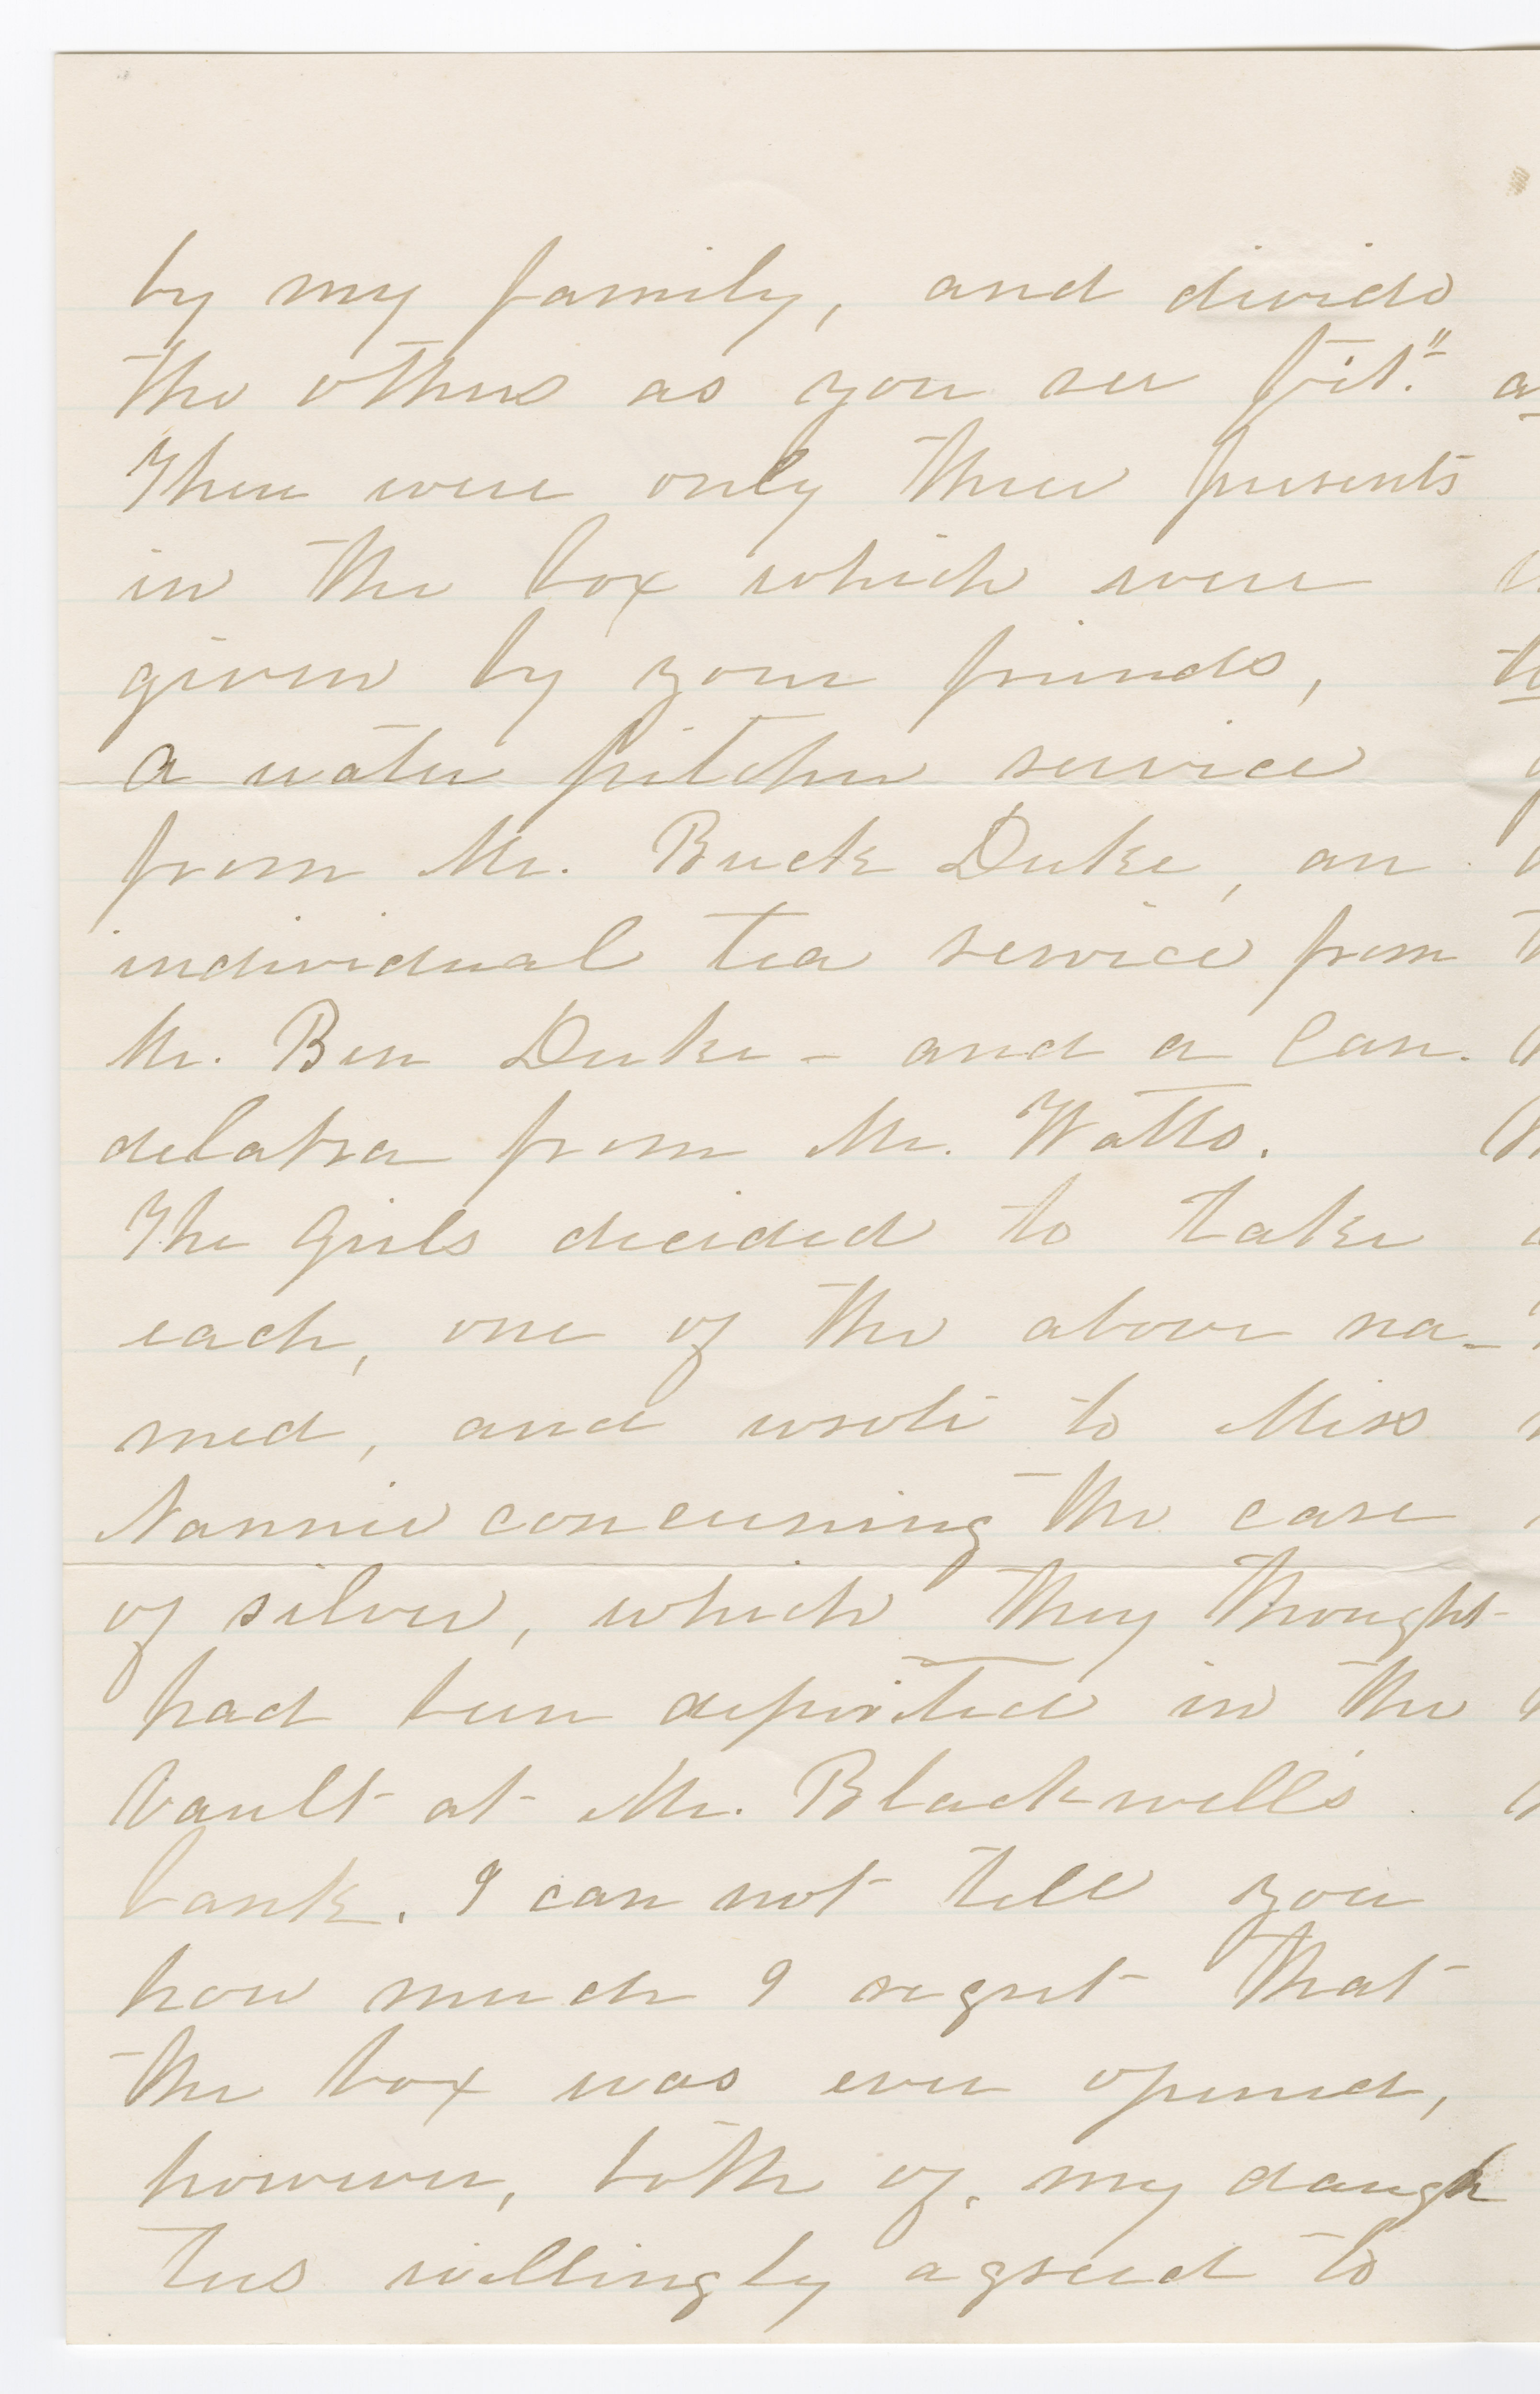 by my family, and divide
the others as you see fit."
There were only three presents
in the box which were
given by your friends,
a water pitcher service
from Mr. Buck Duke, an
individual tea service from
Mr. Ben Duke - and a Can-
delabra from Mr. Watts.
The girls decided to take
each, one of the above na-
med, and wrote to Miss
Nannie concerning the case
of silver, which they thought
had been deposited in the
vault at Mr. Blackwell's
bank. I can not tell you
how much I regret that
the box was ever opened,
however, both of my daugh
ters willingly agreed to